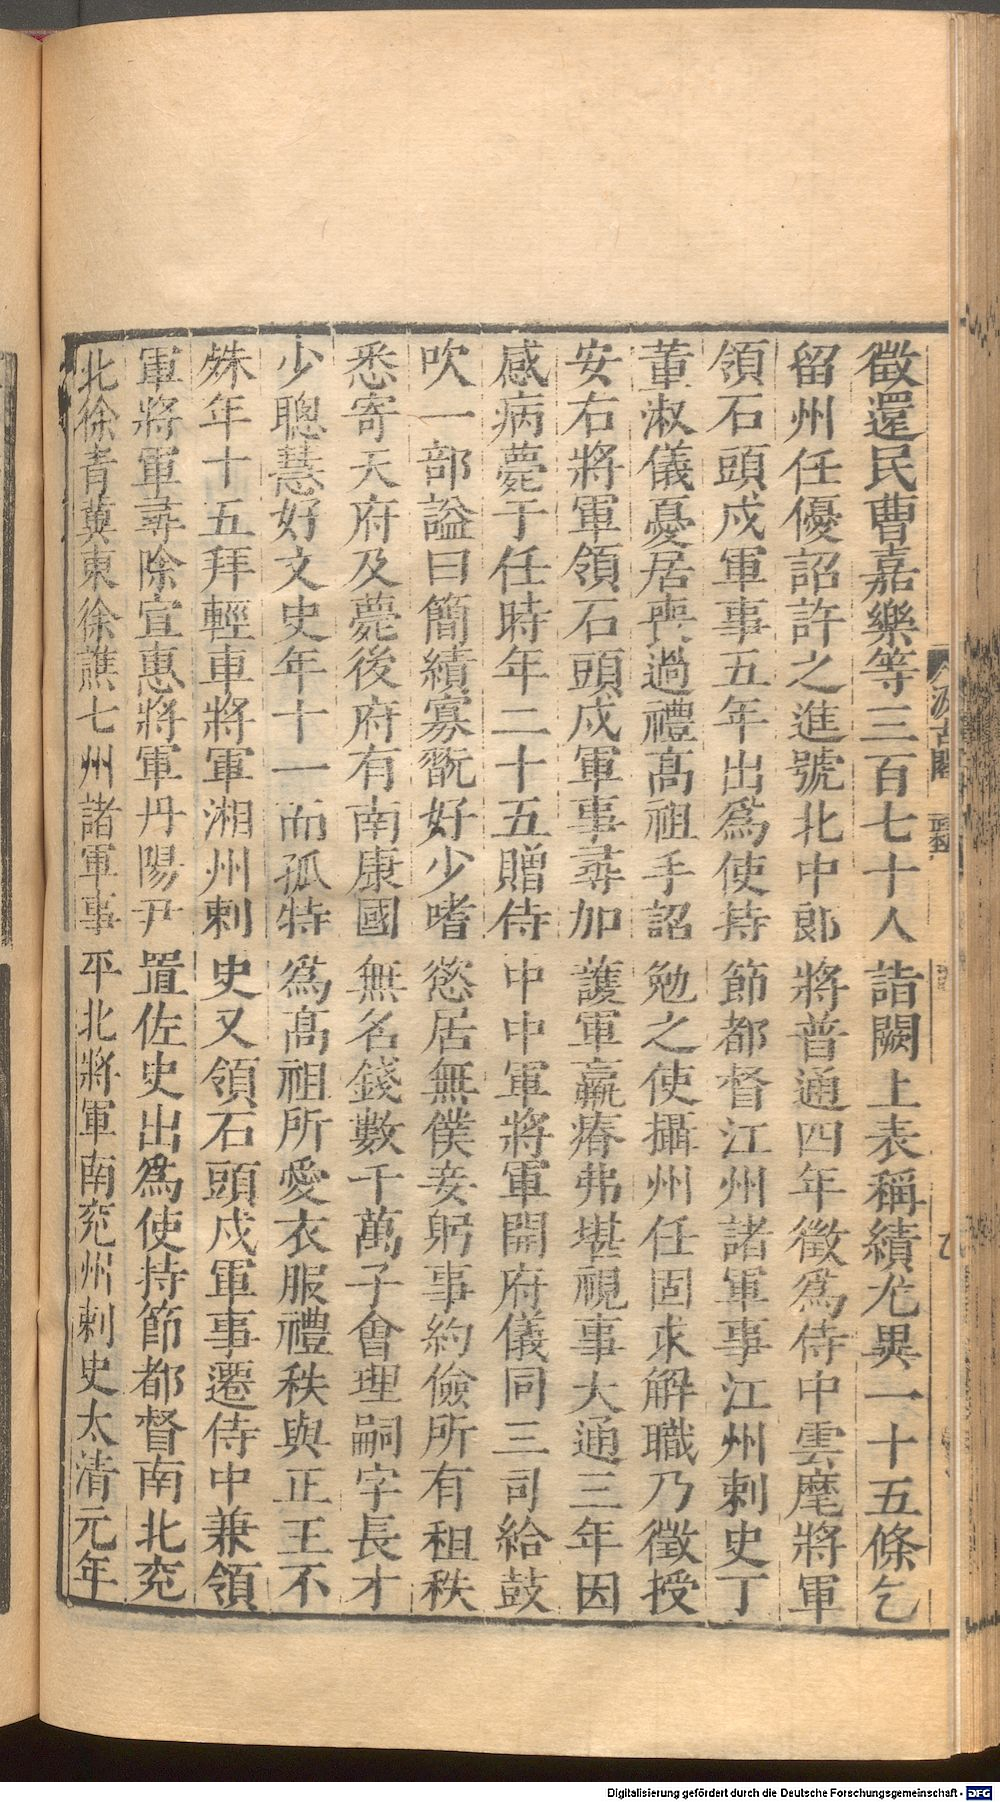 徵還民曹嘉樂等三百七十人詣闕上表稱績尤異一十五條乞
留州任優詔許之進號北中郎將普通四年徵爲侍中雲麾將軍
領石頭戍軍事五年出爲使持節都督江州諸軍事江州刺史丁
董淑儀憂居喪過禮高祖手詔勉之使攝州任固求解職乃徵授
安右將軍領石頭戍軍事尋加護軍羸瘠弗堪視事大通三年因
感病薨于任時年二十五贈侍中中軍將軍開府儀同三司給鼓
吹一部謚曰簡績寡翫好少嗜慾居無僕妾躬事約儉所有租秩
悉寄天府及薨後府有南康國無名錢數千萬子會理嗣字長才
少聰慧好文史年十一而孤特爲高祖所愛衣服禮秩與正王不
殊年十五拜輕車將軍湘州刺史又領石頭戍軍事遷侍中兼領
軍將軍尋除宣惠將軍丹陽尹置佐史出爲使持節都督南北兖
北徐青冀東徐譙七州諸軍事平北將軍南兖州刺史太清元年
Digitalisierung gefördert durch die Deutsche Forschungsgemeinschaft - DFG